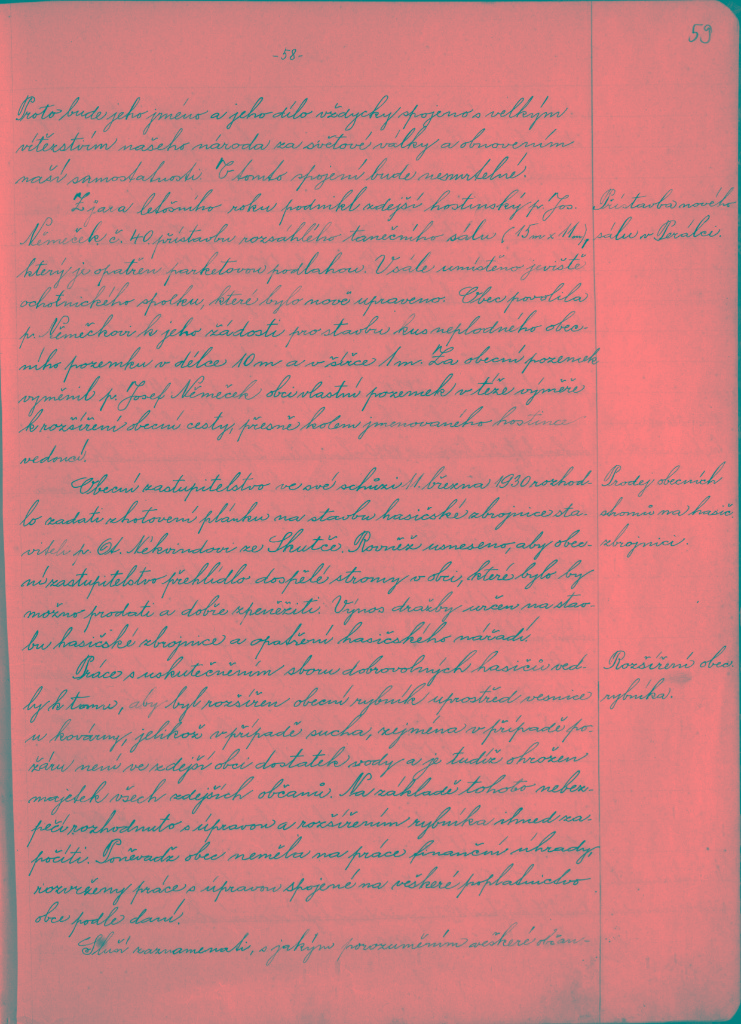 59
-58-
Proto bude jeho jméno a jeho dílo vždycky spojeno s velkým
vítězstvím našeho národa za světové války a obnovením
naší samostatnosti. V tomto spojení bude nesmrtelné.
Z jara letošního roku podnikl zdejší hostinský p. Jos.
Němeček č. 40 přístavbu rozsáhlého tanečního sálu (15 m x 11 m),
který je opatřen parketovou podlahou. V sále umístěno jeviště
ochotnického spolku, které bylo nově upraveno. Obec povolila
p. Němečkovi k jeho žádosti pro stavbu kus neplodného obec-
ního pozemku v délce 10 m a v šířce 1 m. Za obecní pozemek
vyměnil p. Josef Němeček obci vlastní pozemek v téže výměře
k rozšíření obecní cesty, přesně kolem jmenovaného hostince
vedoucí.
Přístavba nového
sálu v Perálci.
Obecní zastupitelstvo ve své schůzi 11. března 1930 rozhod-
lo zadati zhotovení plánku na stavbu hasičské zbrojnice sta-
viteli p. Ot. Nekvindovi ze Skutče. Rovněž usneseno, aby obec-
ní zastupitelstvo přehlídlo dospělé stromy v obci, které bylo by
možno prodati a dobře zpeněžiti. Výnos dražby určen na stav-
bu hasičské zbrojnice a opatření hasičského nářadí.
Prodej obecních
stromů na hasič.
zbrojnici.
Práce s uskutečněním sboru dobrovolných hasičů ved-
ly k tomu, aby byl rozšířen obecní rybník uprostřed vesnice
u kovárny, jelikož v případě sucha, zejména v případě po-
žáru není ve zdejší obci dostatek vody a je tudíž ohrožen
majetek všech zdejších občanů. Na základě tohoto nebez-
pečí rozhodnuto s úpravou a rozšířením rybníka ihned za-
počíti. Poněvadž obec neměla na práce finanční úhrady,
rozvrženy práce s úpravou spojené na veškeré poplatnictvo
obce podle daní.
Rozšíření obec.
rybníka.
Sluší zaznamenati, s jakým porozuměním veškeré občan-